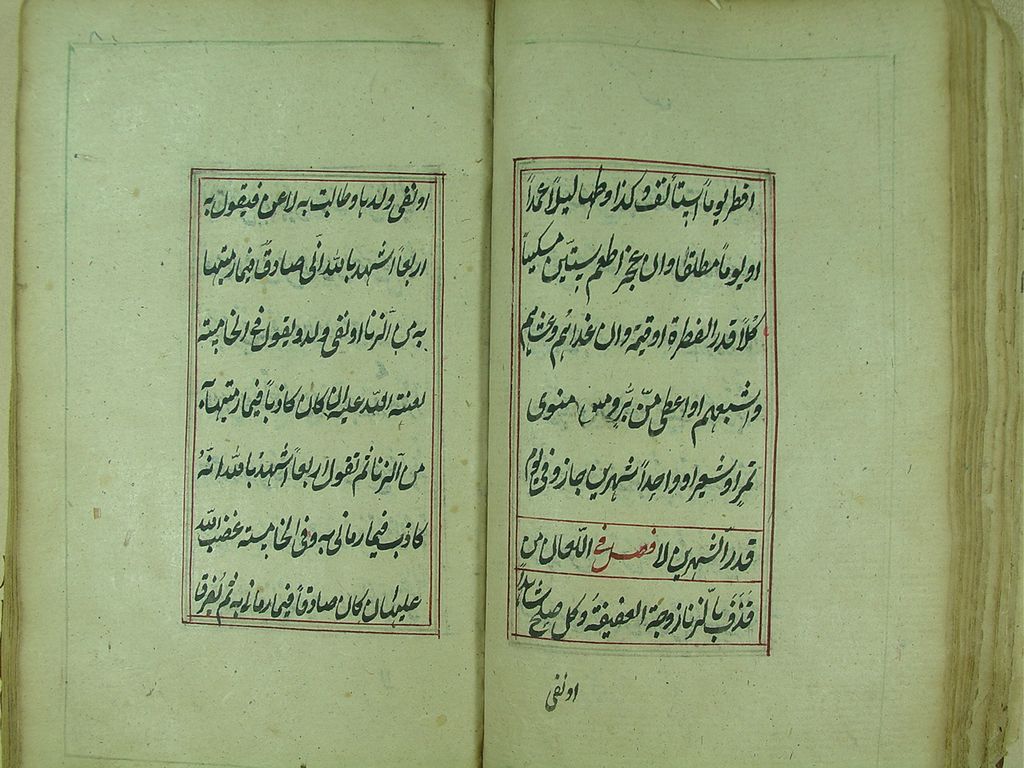 افطر يوماً استألف وكذا وطها ليلاً عمداً
او يوماً مطلقا وان عجز اطعم ستين مسكيناً
كلاً قدر الفطرة او قيمة وان غداهم وعشاهم
واشبعهم او اعطى منّ بُرّ ومن منوى
تمر او شعير او واحداً شهرين جاز وفى يوم
قدر الشهرين لا فصل فى اللعان من
قذف بالزنا زوجة العفيفة وكل صلح شاهداً
او نفى
او نفى ولدها وطالبت به لاعن فيقول به
اربعاً اشهد بالله انّى صادق فيما رميتها
به من الزنا او نفى ولد ويقول فى الخامسة
لعنة الله عليه ان كان كاذباً فيما رميتها به
من الزنا ثم تقول اربعاً اشهد بالله انهُ
كاذب فيما رمانى به وفى الخامسة غضب الله
عليها ان كان صادقاً فيما رمانى به ثم يُفرق